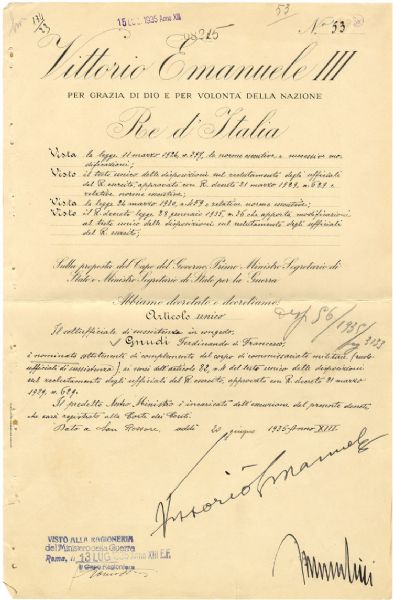 15 LUG. 1935 Anno XIII
53
N.° 53
Vittorio Emanuele III
PER GRAZIA DI DIO E PER VOLONTÀ DELLA NAZIONE
Re d'Italia
Vista la legge 11 marzo 1926, n. 397, le norme esecutive e successive mo-
dificazioni;
Visto il testo unico delle disposizioni sul reclutamento degli ufficiali
del R. esercito, approvato con R. decreto 21 marzo 1929, n. 629 e
relative norme esecutive;
Vista la legge 24 marzo 1930, n. 459 e relative norme esecutive;
Visto il R. decreto legge 28 gennaio 1935, n. 36 che apporta modificazioni
al testo unico delle disposizioni sul reclutamento degli ufficiali
del R. esercito;
Sulla proposta del Capo del Governo, Primo Ministro Segretario di
Stato e Ministro Segretario di Stato per la Guerra
Abbiamo decretato e decretiamo:
Articolo unico
Il sottufficiale di sussistenza in congedo,
Gnudi Ferdinando di Francesco,
è nominato sottotenente di complemento del corpo di commissariato militare (ruolo
ufficiali di sussistenza), ai sensi dell'articolo 22, n. 4 del testo unico delle disposizioni
sul reclutamento degli ufficiali del R. esercito, approvato con R. decreto 21 marzo
1929, n. 629.
Il predetto Nostro Ministro è incaricato dell'esecuzione del presente decreto
che sarà registrato alla Corte dei Conti.
Dato a San Rossore, addì 20 giugno 1935-Anno XIII.
Vittorio Emanuele
Mussolini
VISTO ALLA RAGIONERIA
del Ministero della Guerra
Roma, li 13 LUG. 1935 Anno XIII E.F.
Il Capo Ragioniere